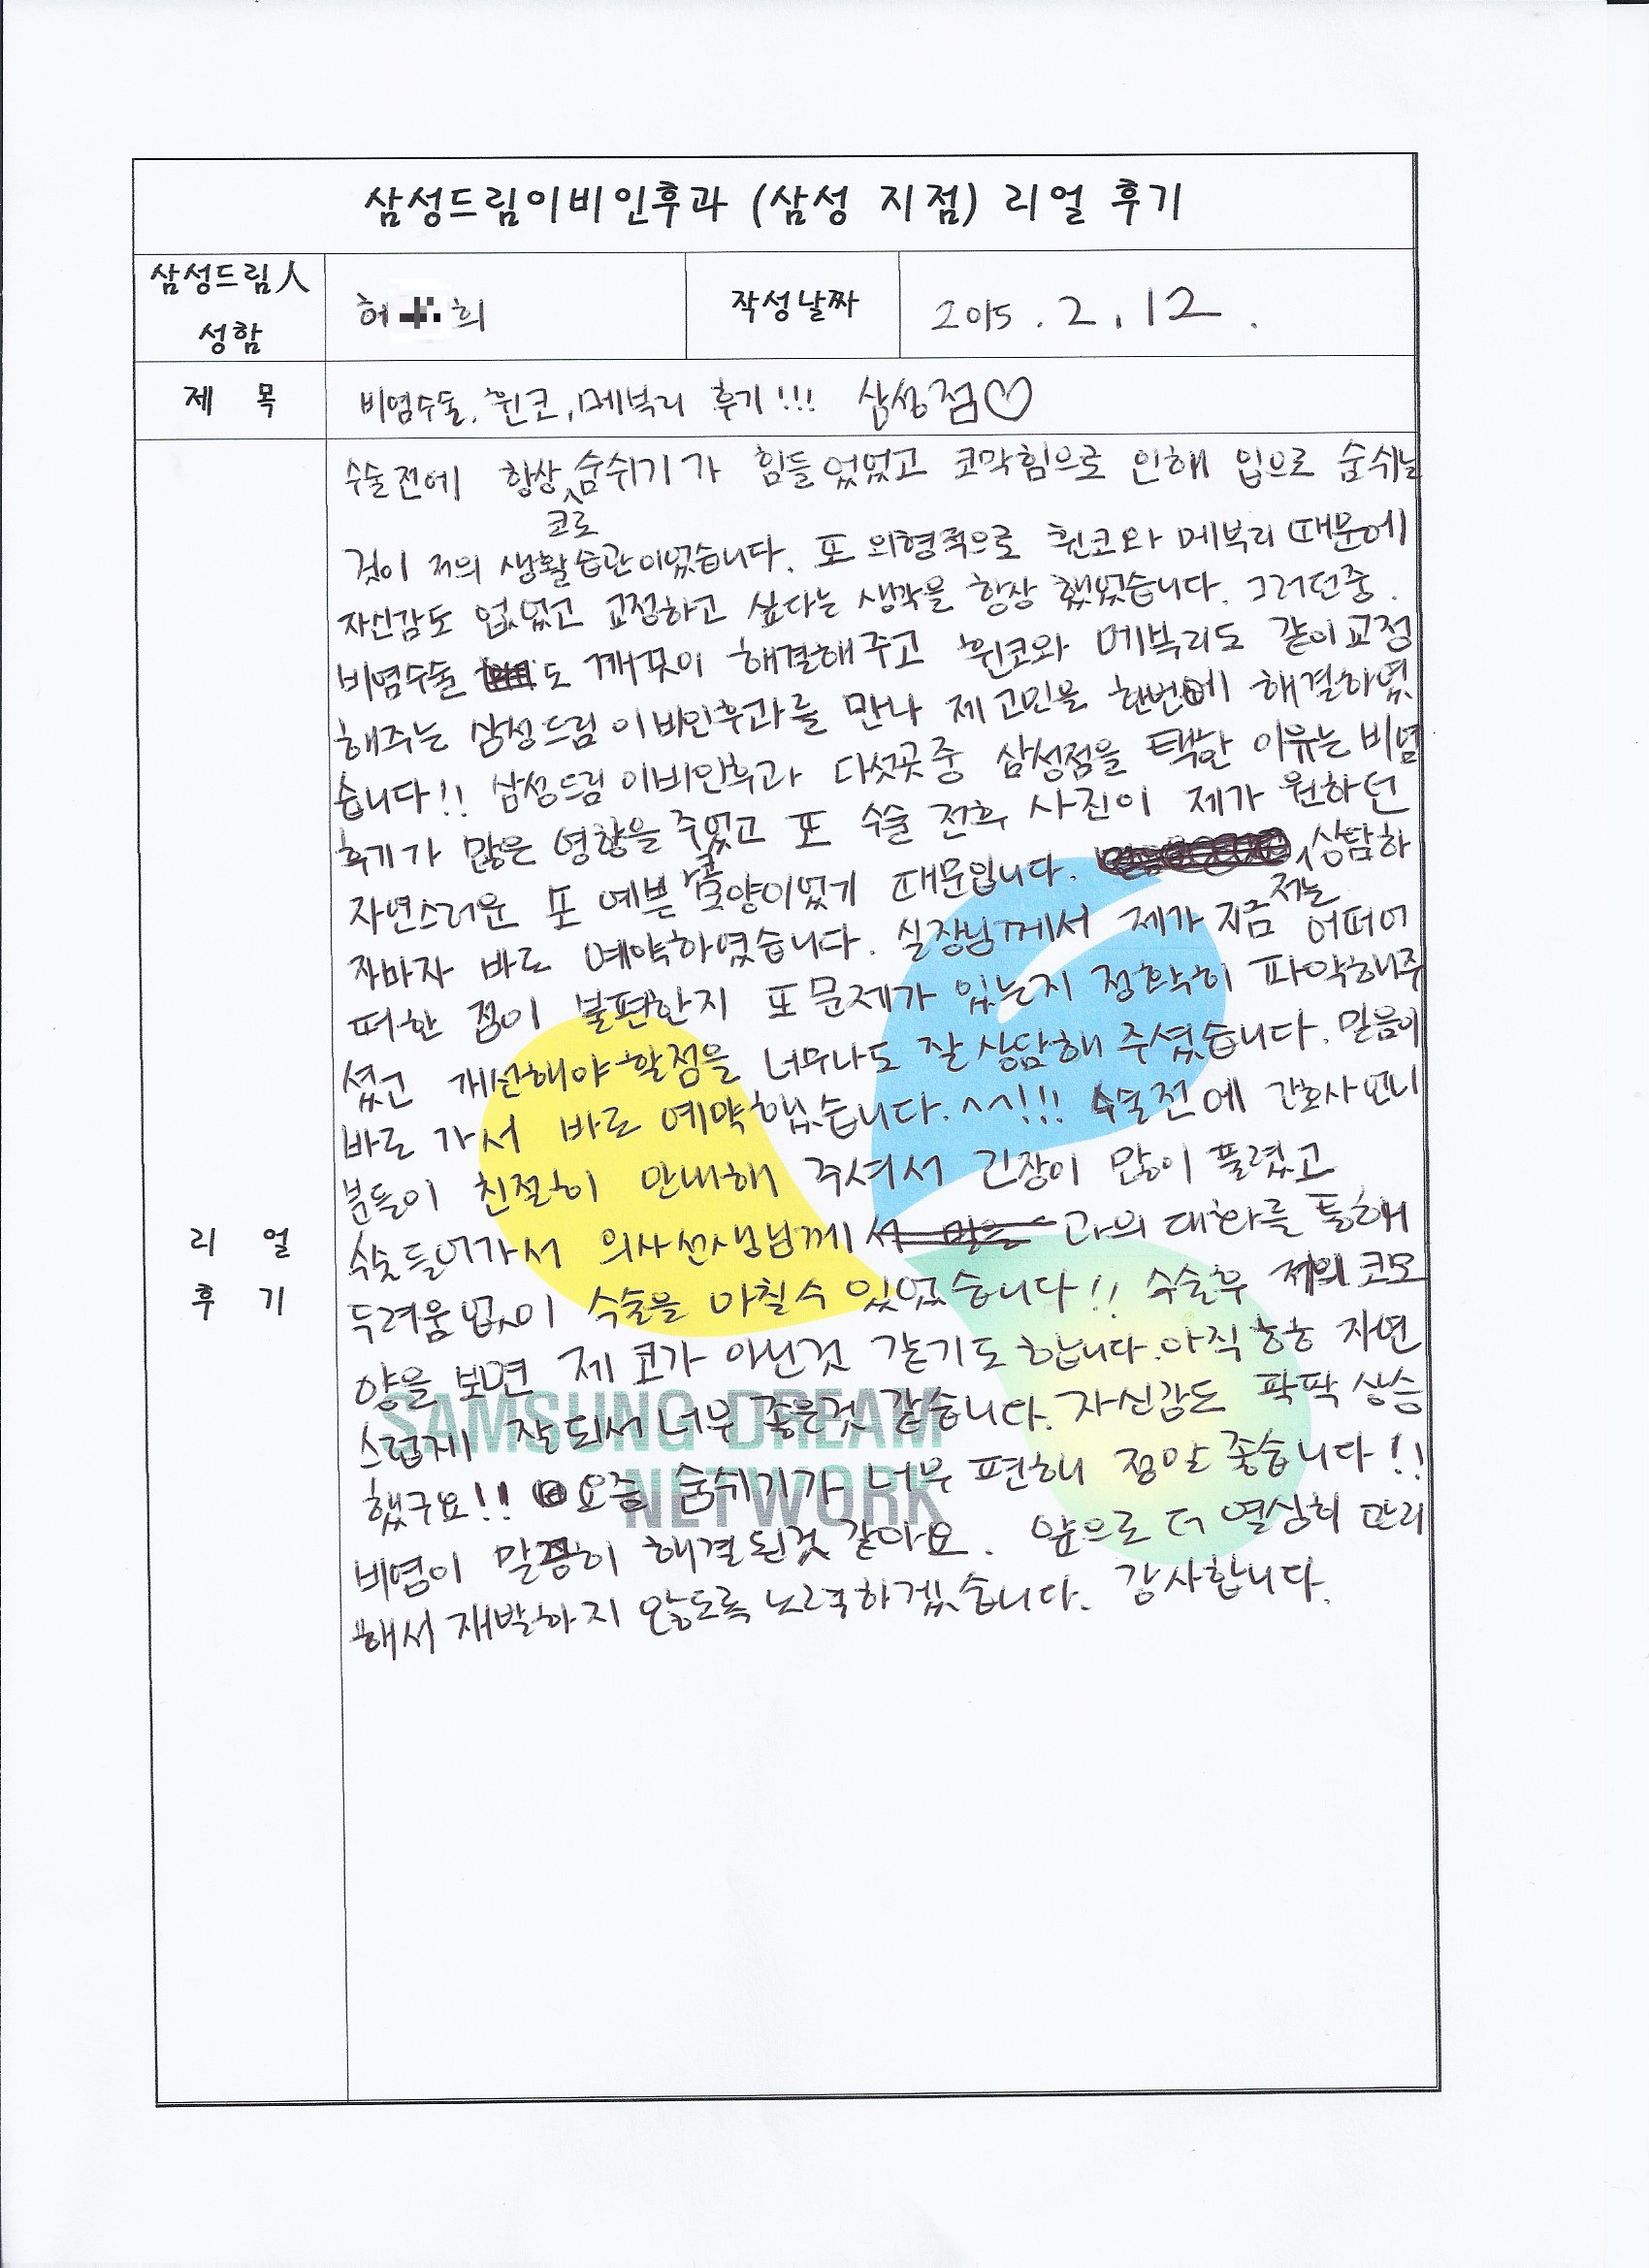 삼성드림이비인후과 (삼성 지점) 리얼 후기
삼성드림人
성함
허 희
작성날짜
2015.2.12.
제 목
비염수술, 휜코, 메부리 후기!!! 삼성점♡
리 얼
후 기
수술전에 항상 숨쉬기가 힘들었었고 코막힘으로 인해 입으로 숨쉬는
코로
것이 저의 생활습관이었습니다. 또 외형적으로 휜코와 메부리 때문에
자신감도 없었고 교정하고 싶다는 생각을 항상 했었습니다. 그러던중.
비염수술도 깨끗이 해결해주고 휜코와 메부리도 같이교정
해주는 삼성드림이비인후과를 만나 제고민을 한번에 해결하였
습니다!! 삼성드림이비인후과 다섯곳중 삼성점을 택한 이유는 비염
후기가 많은 영향을 주었고 또 수술 전후 사진이 제가 원하던
자연스러운 또 예쁜 코모양이었기 때문입니다. 상담하
저는
자마자 바로 예약하였습니다. 실장님께서 제가지금 어떠어
떠한 점이 불편한지 또 문제가 있는지 정확히 파악해주
셨고 개선해야할점을 너무나도 잘상담해 주셨습니다. 믿음이
바로 가서 바로 예약했습니다.^^!!! 수술전에 간호사언니
분들이 친절히 안내해 주셔서 긴장이 많이 풀렸고
수술들어가서 의사선생님께 과의 대화를 통해
두려움없이 수술을 마칠수 있었습니다!! 수술후 저의 코모
양을 보면 제 코가 아닌것 같기도 합니다.아직 자연
스럽게 잘되서 너무 좋은것 같습니다. 자신감도 팍팍 상승
했구요!! 요즘 숨쉬기가 너무 편해 정말 좋습니다!!
비염이 말끔히 해결된것 같아요. 앞으로 더 열심히 관리
해서 재발하지 않도록 노력하겠습니다. 감사합니다.
SAMSUNG DREAM
NETWORK